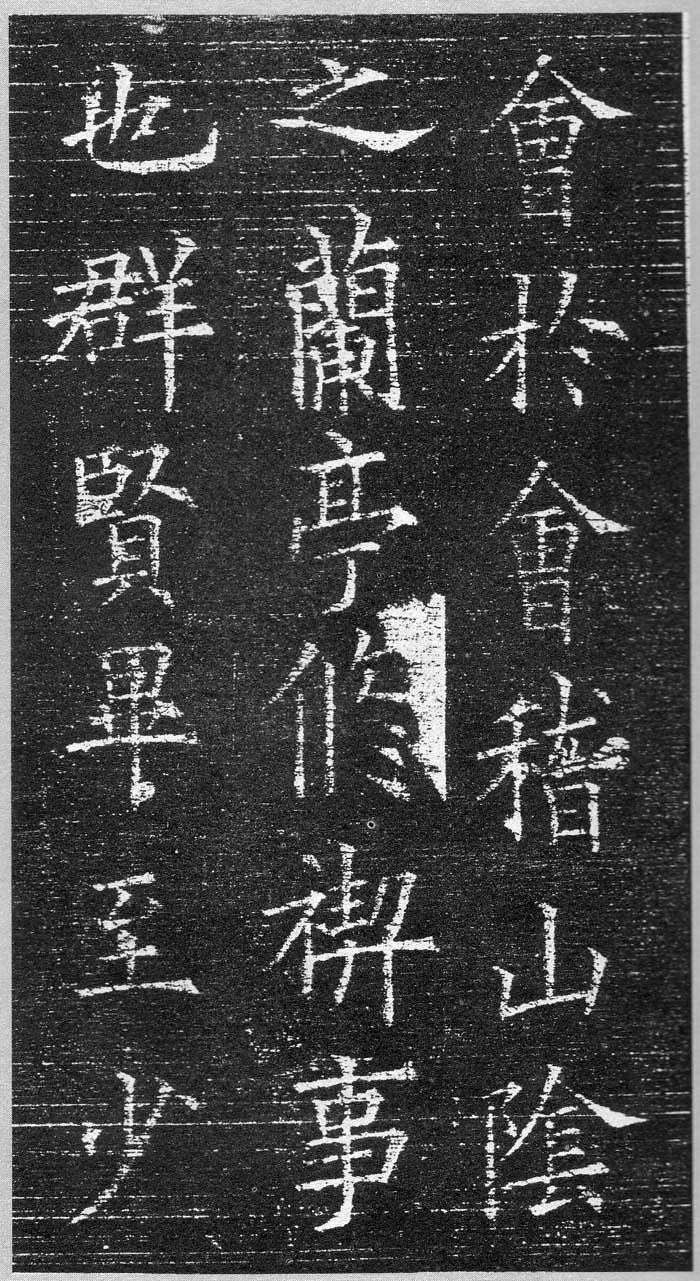 會於會稽山陰
之蘭亭修禊事
也群賢畢至少